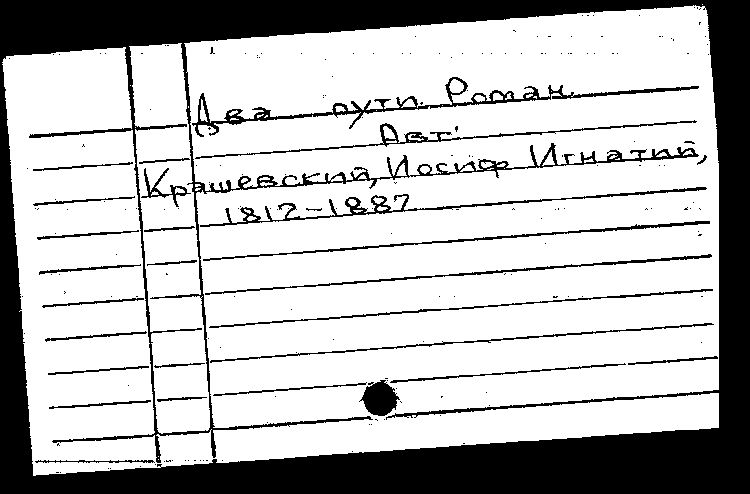 Два пути. Роман.
Авт:
Крашевский, Иосиф Игнатий,
1812-1887